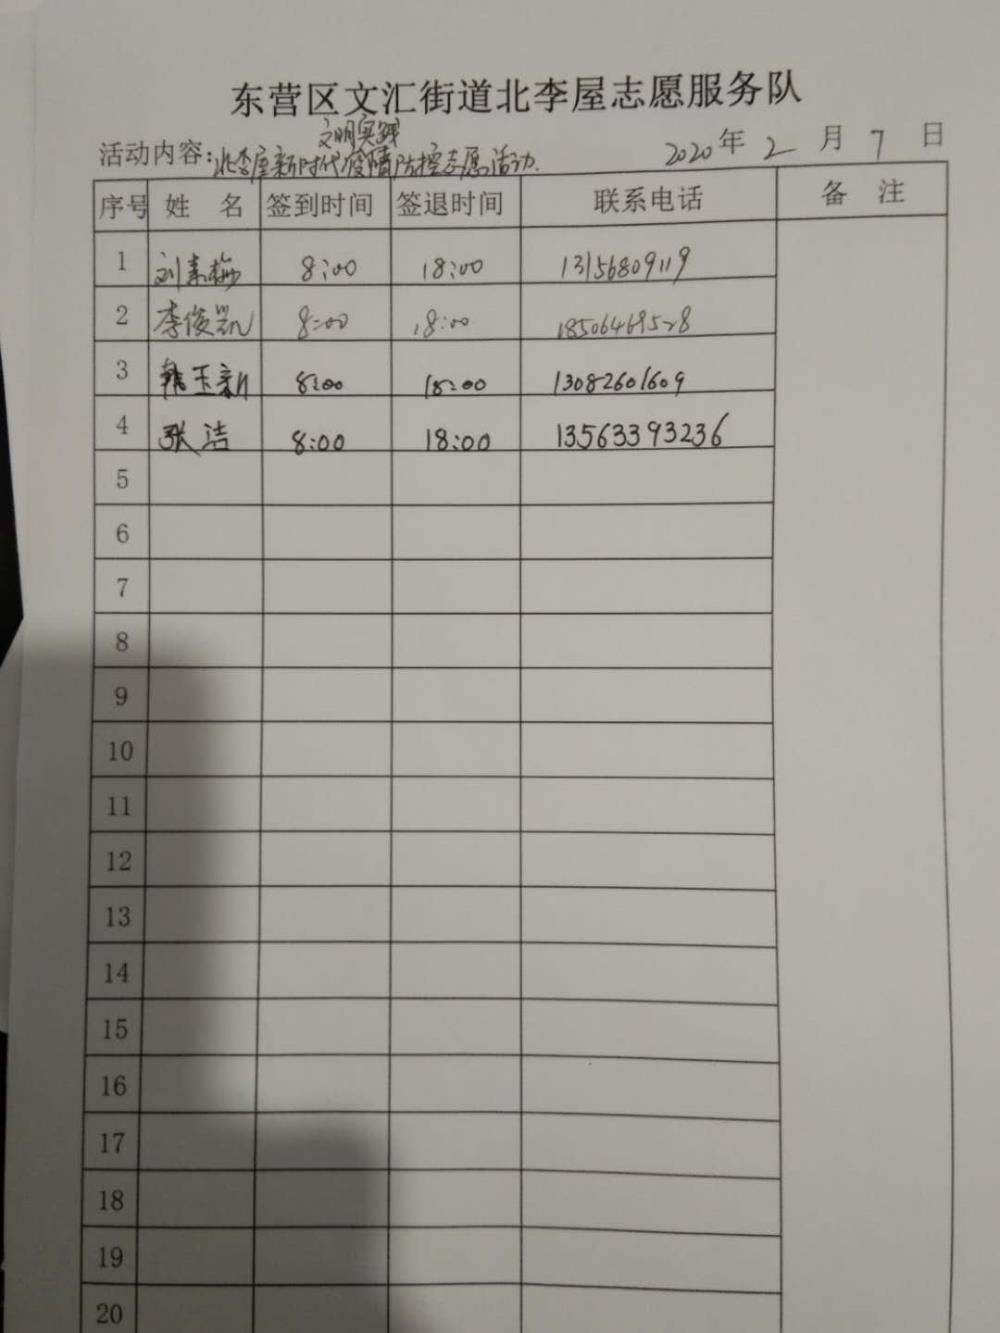 东营区文汇街道北李屋志愿服务队
文明实践
活动内容:北李屋新时代疫情防控志愿活动. 2020年2月7日
序号 姓名 签到时间 签退时间 联系电话 备注
1 刘素梅 8:00 18:00 13156809119
2 李俊凯 8:00 18:00 18506469528
3 韩玉新 8:00 18:00 13082601609
4 张洁 8:00 18:00 13563393236
5
6
7
8
9
10
11
12
13
14
15
16
17
18
19
20